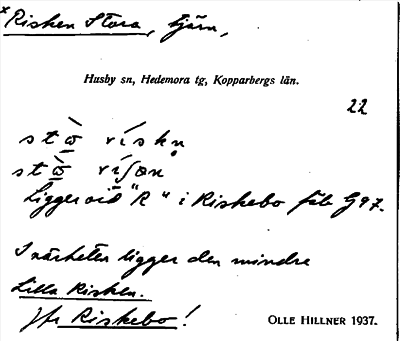 x Risken Stora, tjärn,
Husby sn, Hedemora tg, Kopparbergs län.
22
Ligger vid "R" i Riskebo fäb G97.
I närheten ligger den mindre
Lilla Risken.
Jfr Riskebo!
OLLE HILLNER 1937.